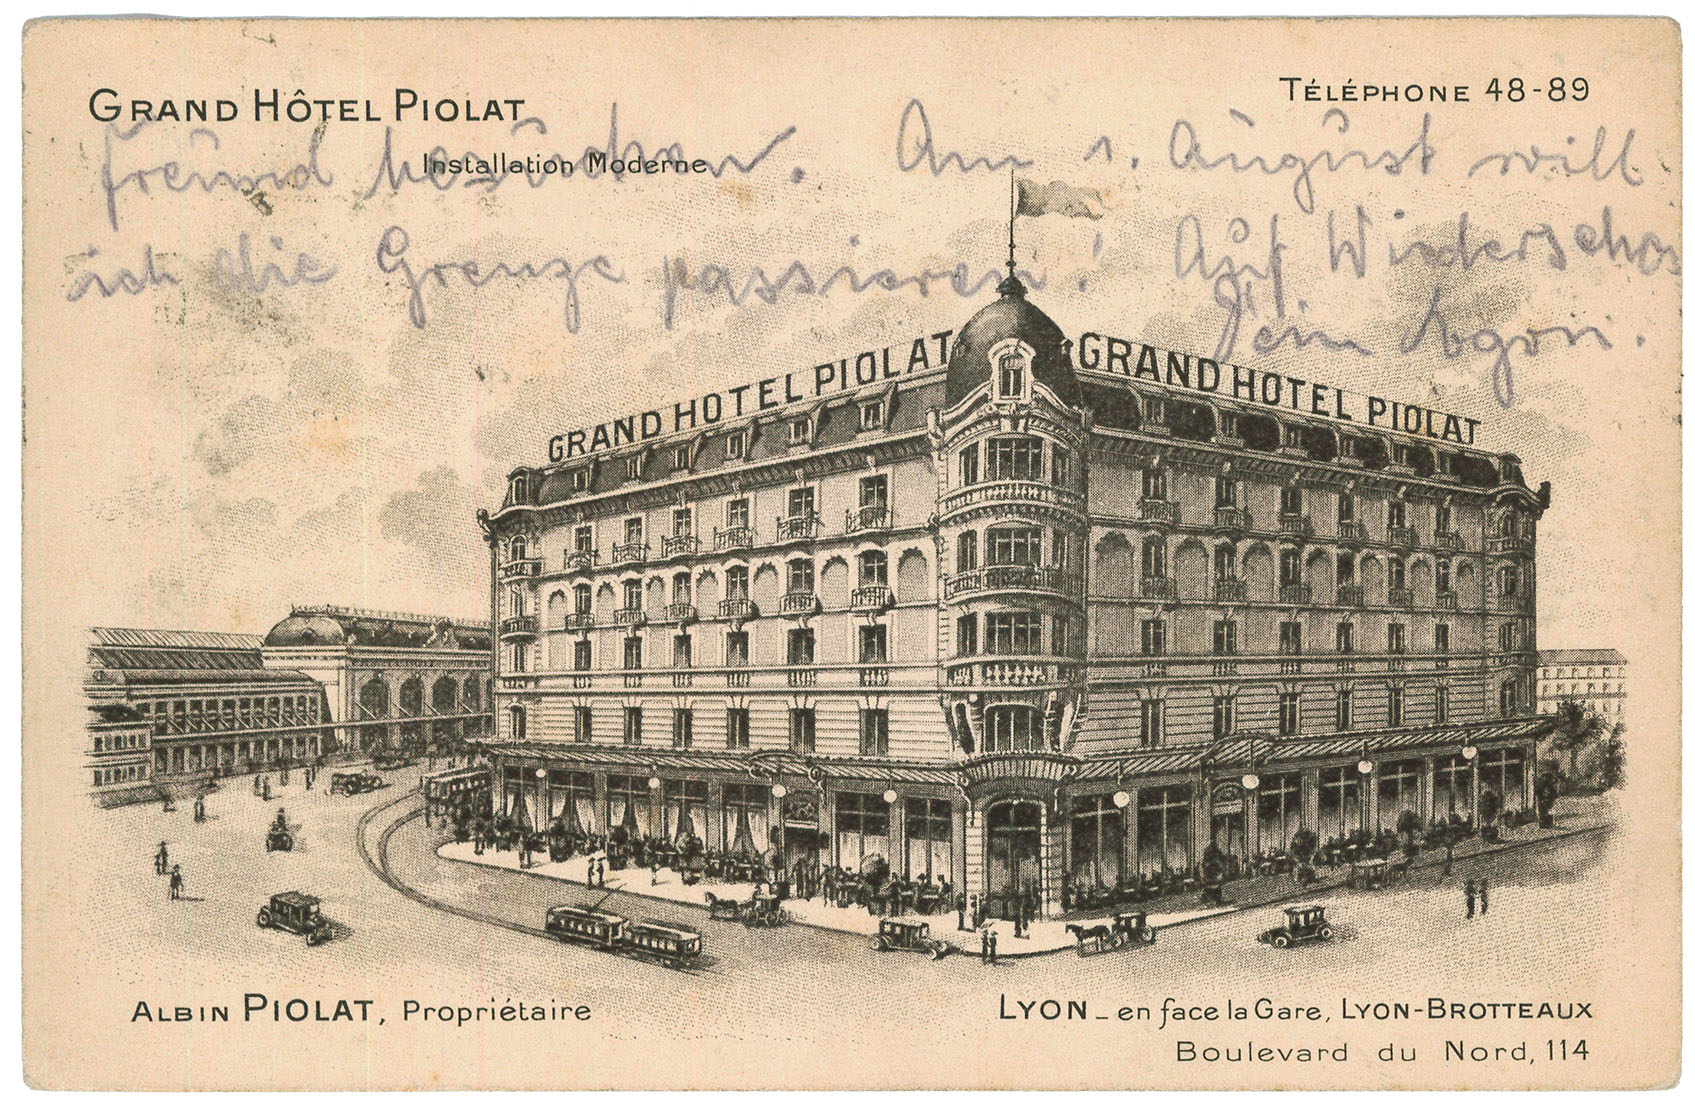 GRAND HÔTEL PIOLAT
TÉLÉPHONE 48-89
Installation Moderne
freund besuchen. Am 1. August will
ich die Grenze passieren! Auf Wiederschas
Dein Agon.
GRAND HOTEL PIOLAT
GRAND HOTEL PIOLAT
ALBIN PIOLAT, Propriétaire
LYON - en face la Gare, LYON-BROTTEAUX
Boulevard du Nord, 114